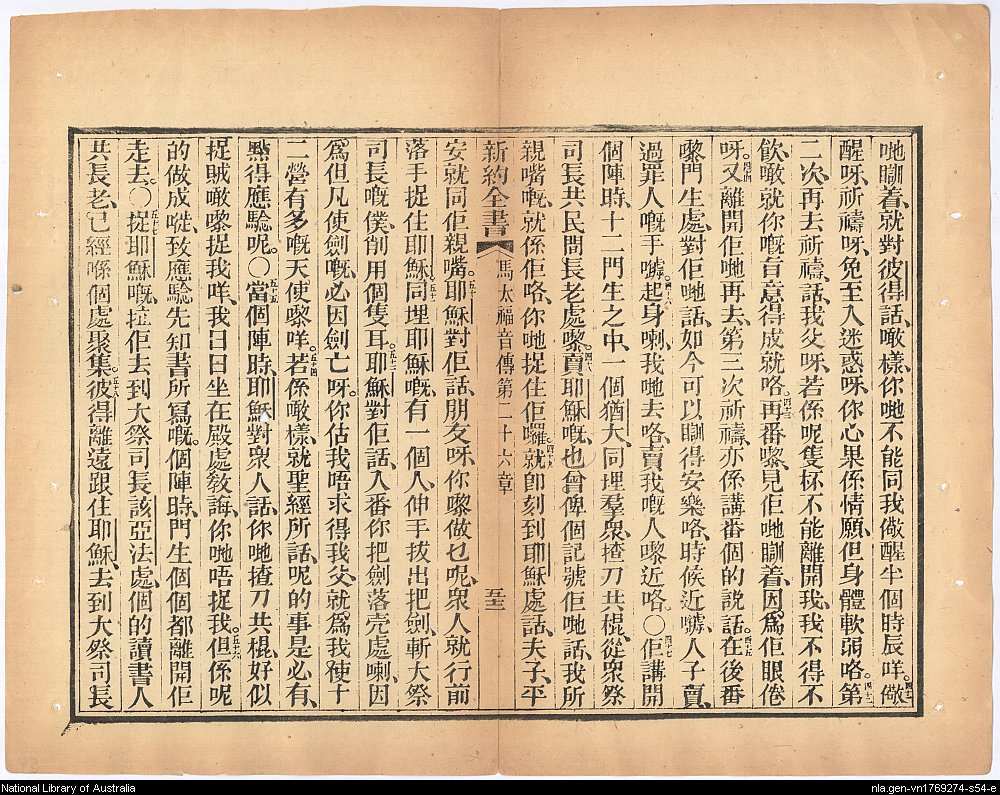 哋瞓着、就對彼得話、噉樣、你哋不能同我儆醒半個時辰咩。四一儆
醒呀、祈禱呀、免至入迷惑呀、你心果係情願、但身體軟弱咯。四二第
二次、再去祈禱、話、我父呀、若係呢隻杯不能離開我、我不得不
飲、噉就你嘅旨意得成就咯。四三再番嚟、見佢哋瞓着、因爲佢眼倦
呀。四四又離開佢哋再去、第三次祈禱、亦係講番個的說話。四五在後番
嚟門生處、對佢哋話、如今可以瞓得安樂咯、時候近嘑、人子賣、
過罪人嘅手嘑。四六起身喇、我哋去咯、賣我嘅人嚟近咯。〇四七佢講開
個陣時、十二門生之中、一個猶大、同埋羣衆、揸刀共棍、從衆祭
司長共民間長老處嚟。四八賣耶穌嘅、也曾俾個記號佢哋、話、我所
親嘴嘅、就係佢咯、你哋捉住佢囉。四九就即刻到耶穌處、話、夫子、平
新約全書 馬太福音傳第二十六章 五三
安、就同佢親嘴。五十耶穌對佢話、朋友呀、你嚟做乜呢、衆人就行前
落手捉住耶穌。五一同埋耶穌嘅、有一個人、伸手拔出把劍、斬大祭
司長嘅僕、削甩個隻耳。五二耶穌對佢話、入番你把劍落壳處喇、因
爲但凡使劍嘅、必因劍亡呀。五三你估我唔求得我父、就爲我使十
二營有多嘅天使嚟咩。五四若係噉樣、就聖經所話、呢的事是必有、
點得應驗呢。〇五五當個陣時、耶穌對衆人話、你哋揸刀共棍、好似
捉賊噉嚟捉我咩、我日日坐在殿處敎誨、你哋唔捉我。五六但係呢
的做成嘥、致應驗先知書所寫嘅。個陣時、門生個個都離開佢
走去。〇五七捉耶穌嘅、拉佢去到大祭司長該亞法處、個的讀書人
共長老、已經喺個處聚集。五八彼得離遠跟住耶穌、去到大祭司長
National Library of Australia
nla.gen-vn1769274-s54-e